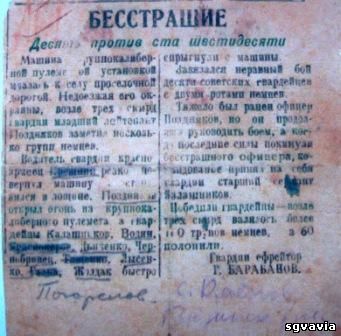 БЕССТРАШИЕ
Десять против ста шестидесяти
Машина с крупнокалибер-
ной пулеметной установкой
мчалась к селу проселочной
дорогой. Недоезжая его ок-
раины, возле трех скирд
гвардии младший лейтенант
Поздняков заметил несколь-
ко групп немцев.
Водитель гвардии красно-
армеец резко по-
вернул машину
лся в лощине.
открыл огонь из крупнока-
либерного пулемета, а гвар-
дейцы Калашников, Водин,
Красноперов, Дьяченко, Чер-
Гащенко, Лысен-
ко, Жалдак быстро
спрыгнули с машины.
Завязался неравный бой
десяти советских гвардейцев
с двумя ротами немцев.
Тяжело был ранен офицер
Поздняков, но он продол-
жал руководить боем, а ког-
да последние силы покинули
бесстрашного офицера, ко-
мандование принял на себя
гвардии старший сержант
Калашников.
Победили гвардейцы—возле
трех скирд валялось более
трупов немцев, а 60
полонили.
Гвардии ефрейтор
Г. БАРАБАНОВ.
sgvavia